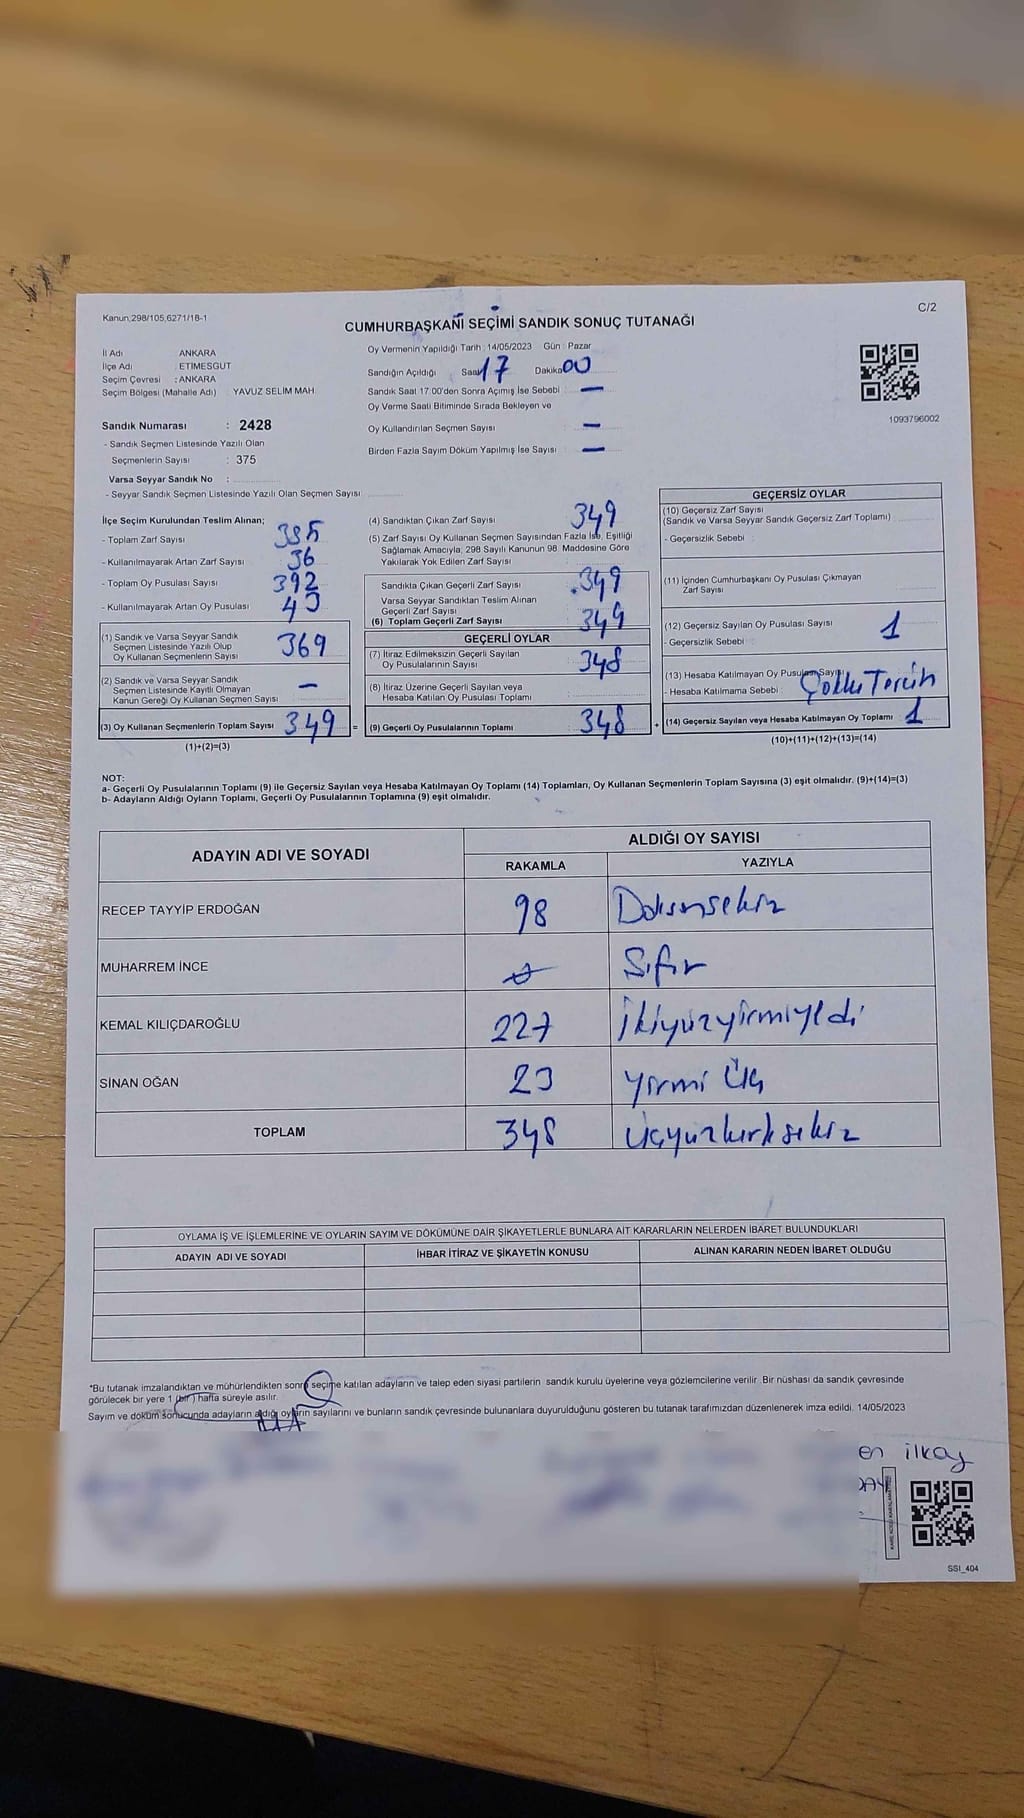 Kanun,298/105,6271/18-1
C/2
CUMHURBAŞKANI SEÇİMİ SANDIK SONUÇ TUTANAĞI
İl Adı ANKARA
İlçe Adı : ETİMESGUT
Seçim Çevresi : ANKARA
Seçim Bölgesi (Mahalle Adı) . YAVUZ SELİM MAH
Sandık Numarası : 2428
- Sandık Seçmen Listesinde Yazılı Olan
Seçmenlerin Sayısı : 375
Varsa Seyyar Sandık No :
- Seyyar Sandık Seçmen Listesinde Yazılı Olan Seçmen Sayısı
Oy Vermenin Yapıldığı Tarih : 14/05/2023 Gün : Pazar
Sandığın Açıldığı Saat 17 Dakika 00
Sandık Saat 17:00'den Sonra Açımış İse Sebebi : —
Oy Verme Saati Bitiminde Sırada Bekleyen ve
Oy Kullandırılan Seçmen Sayısı —
Birden Fazla Sayım Döküm Yapılmış İse Sayısı —
1093796002
İlçe Seçim Kurulundan Teslim Alınan;
- Toplam Zarf Sayısı 385
- Kullanılmayarak Artan Zarf Sayısı 36
- Toplam Oy Pusulası Sayısı 392
- Kullanılmayarak Artan Oy Pusulası 43
(1) Sandık ve Varsa Seyyar Sandık
Seçmen Listesinde Yazılı Olup
Oy Kullanan Seçmenlerin Sayısı 369
(2) Sandık ve Varsa Seyyar Sandık
Seçmen Listesinde Kayıtlı Olmayan
Kanun Gereği Oy Kullanan Seçmen Sayısı —
(3) Oy Kullanan Seçmenlerin Toplam Sayısı 349 =
(1)+(2)=(3)
(4) Sandıktan Çıkan Zarf Sayısı 349
(5) Zarf Sayısı Oy Kullanan Seçmen Sayısından Fazla İse, Eşitliği
Sağlamak Amacıyla; 298 Sayılı Kanunun 98. Maddesine Göre
Yakılarak Yok Edilen Zarf Sayısı
Sandıkta Çıkan Geçerli Zarf Sayısı 349
Varsa Seyyar Sandıktan Teslim Alınan
Geçerli Zarf Sayısı
(6) Toplam Geçerli Zarf Sayısı 349
GEÇERLİ OYLAR
(7) İtiraz Edilmeksizin Geçerli Sayılan
Oy Pusulalarının Sayısı 348
(8) İtiraz Üzerine Geçerli Sayılan veya
Hesaba Katılan Oy Pusulası Toplamı
(9) Geçerli Oy Pusulalarının Toplamı 348 +
GEÇERSİZ OYLAR
(10) Geçersiz Zarf Sayısı
(Sandık ve Varsa Seyyar Sandık Geçersiz Zarf Toplamı)
- Geçersizlik Sebebi :
(11) İçinden Cumhurbaşkanı Oy Pusulası Çıkmayan
Zarf Sayısı
(12) Geçersiz Sayılan Oy Pusulası Sayısı 1
- Geçersizlik Sebebi
(13) Hesaba Katılmayan Oy Pusulası Sayısı
- Hesaba Katılmama Sebebi : Çoklu Tercih
(14) Geçersiz Sayılan veya Hesaba Katılmayan Oy Toplamı 1
(10)+(11)+(12)+(13)=(14)
NOT:
a- Geçerli Oy Pusulalarının Toplamı (9) ile Geçersiz Sayılan veya Hesaba Katılmayan Oy Toplamı (14) Toplamları, Oy Kullanan Seçmenlerin Toplam Sayısına (3) eşit olmalıdır. (9)+(14)=(3)
b- Adayların Aldığı Oyların Toplamı, Geçerli Oy Pusulalarının Toplamına (9) eşit olmalıdır.
ADAYIN ADI VE SOYADI
ALDIĞI OY SAYISI
RAKAMLA YAZIYLA
RECEP TAYYİP ERDOĞAN 98 Doksansekiz
MUHARREM İNCE 0 Sıfır
KEMAL KILIÇDAROĞLU 227 İkiyüzyirmiyedi
SİNAN OĞAN 23 yirmi Üç
TOPLAM 348 Üçyüzkırksekiz
OYLAMA İŞ VE İŞLEMLERİNE VE OYLARIN SAYIM VE DÖKÜMÜNE DAİR ŞİKAYETLERLE BUNLARA AİT KARARLARIN NELERDEN İBARET BULUNDUKLARI
ADAYIN ADI VE SOYADI İHBAR İTİRAZ VE ŞİKAYETİN KONUSU ALINAN KARARIN NEDEN İBARET OLDUĞU
*Bu tutanak imzalandıktan ve mühürlendikten sonra seçime katılan adayların ve talep eden siyasi partilerin sandık kurulu üyelerine veya gözlemcilerine verilir. Bir nüshası da sandık çevresinde
görülecek bir yere 1 (bir) hafta süreyle asılır.
Sayım ve döküm sonucunda adayların aldığı oyların sayılarını ve bunların sandık çevresinde bulunanlara duyurulduğunu gösteren bu tutanak tarafımızdan düzenlenerek imza edildi. 14/05/2023
en ilkay
SSI_404